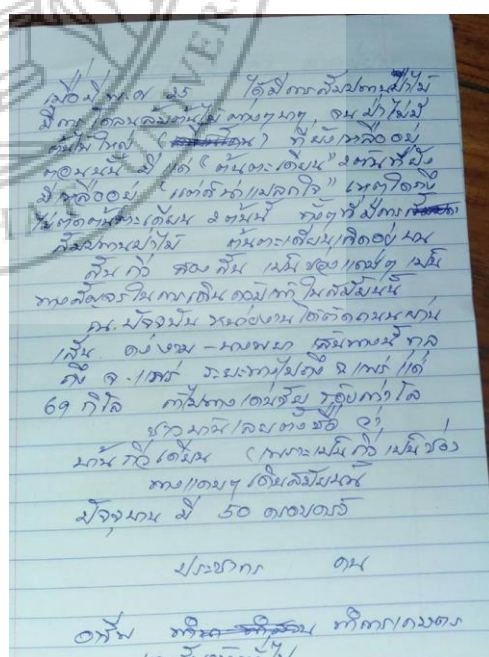 เมื่อปี พ.ศ 25 ได้มีการสัมปทานป่าไม้
มีการโค่นล้มต้นไม้ ต่างๆนาๆ จนป่าไม่มี
ต้นไม้ใหญ่ ที่ยังเหลืออยู่
ตอนนั้น มีแต่ "ต้นตะเคียน" 2ต้นที่ยัง
มีเหลืออยู่ "แต่ที่น่าแปลกใจ" เหตุใดถึง
ไม่ตัดต้นตะเคียน 2ต้นนี้ ทั้งๆที่มีการ
สัมปทานป่าไม้ ต้นตะเคียนเกิดอยู่บน
สันกิ่ว สองสัน เป็นช่องแคบๆ เป็น
ทางสัญจรในการเดินค้าขาย ในสมัยนั้น
ณ. ปัจจุบัน หน่วยงานได้ตัดถนนผ่าน
เส้น ดงงาม - นางพญา เส้นทางนี้
ถึง จ. แพร่ ระยะทางไปถึง จ แพร่ แค่
69 กิโล ถ้าไปทาง เด่นชัย ร้อยกว่าโล
ชาวบ้านเลยตั้งชื่อ ว่า
บ้านกิ่วเคียน (เพราะเป็นกิ่ว เป็นช่อง
ทางแคบๆ เดินสมัยนั้น
ปัจจุบัน มี 50 ครอบครัว
ประชากร คน
อาชีพ ทำการเกษตร